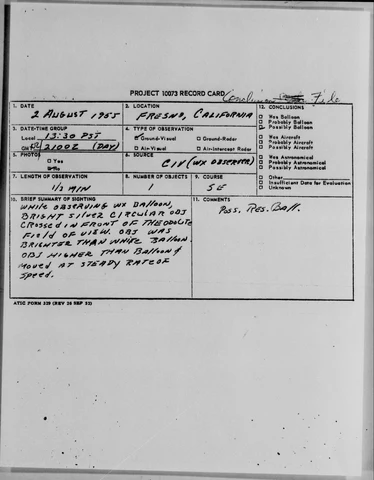 PROJECT 10073 RECORD CARD
File
1. DATE
2 AUGUST 1955
2. LOCATION
FRESNO, CALIFORNIA
12. CONCLUSIONS
□ Was Balloon
□ Probably Balloon
☑ Possibly Balloon
□ Was Aircraft
□ Probably Aircraft
□ Possibly Aircraft
□ Was Astronomical
□ Probably Astronomical
□ Possibly Astronomical
□ Other
□ Insufficient Data for Evaluation
□ Unknown
3. DATE-TIME GROUP
Local 13:30 PST
GMT 2100Z (DAY)
4. TYPE OF OBSERVATION
☑ Ground-Visual □ Ground-Radar
□ Air-Visual □ Air-Intercept Radar
5. PHOTOS
□ Yes
☑ No
6. SOURCE
CIV (WX OBSERVER)
7. LENGTH OF OBSERVATION
1/2 MIN
8. NUMBER OF OBJECTS
1
9. COURSE
SE
10. BRIEF SUMMARY OF SIGHTING
WHILE OBSERVING WX BALLOON,
BRIGHT SILVER CIRCULAR OBJ
CROSSED IN FRONT OF THEODOLITE
FIELD OF VIEW. OBJ WAS
BRIGHTER THAN WHITE BALLOON.
OBJ HIGHER THAN BALLOON &
MOVED AT STEADY RATE OF
SPEED.
11. COMMENTS
Poss. Res. Ball.
ATIC FORM 329 (REV 26 SEP 52)